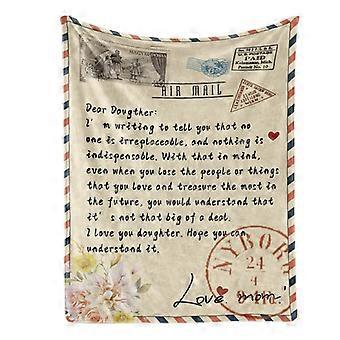 MAGYAR
U. S. POSTAGE
1¢ PAID
Kalamazoo, Mich.
Permit No. 10
AIR MAIL
Dear Dougther:
I'm writing to tell you that no
one is irreplaceable, and nothing is
indispensable. With that in mind,
even when you lose the people or things
that you love and treasure the most in
the future, you would understand that
it's not that big of a deal.
I love you daughter. Hope you can
understand it.
NYBORG
24
4
Love, mom.